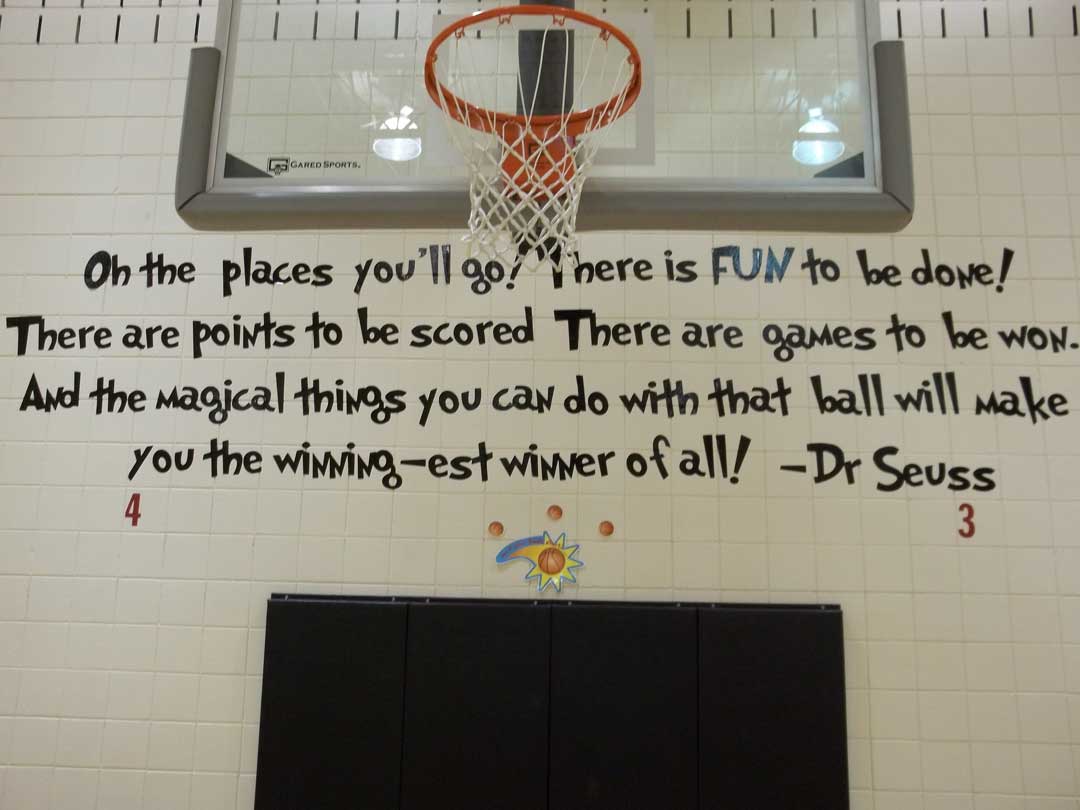 GARED SPORTS.
Oh the places you'll go! There is FUN to be done!
There are points to be scored There are games to be won.
And the magical things you can do with that ball will make
you the winning-est winner of all! -Dr Seuss
4 3